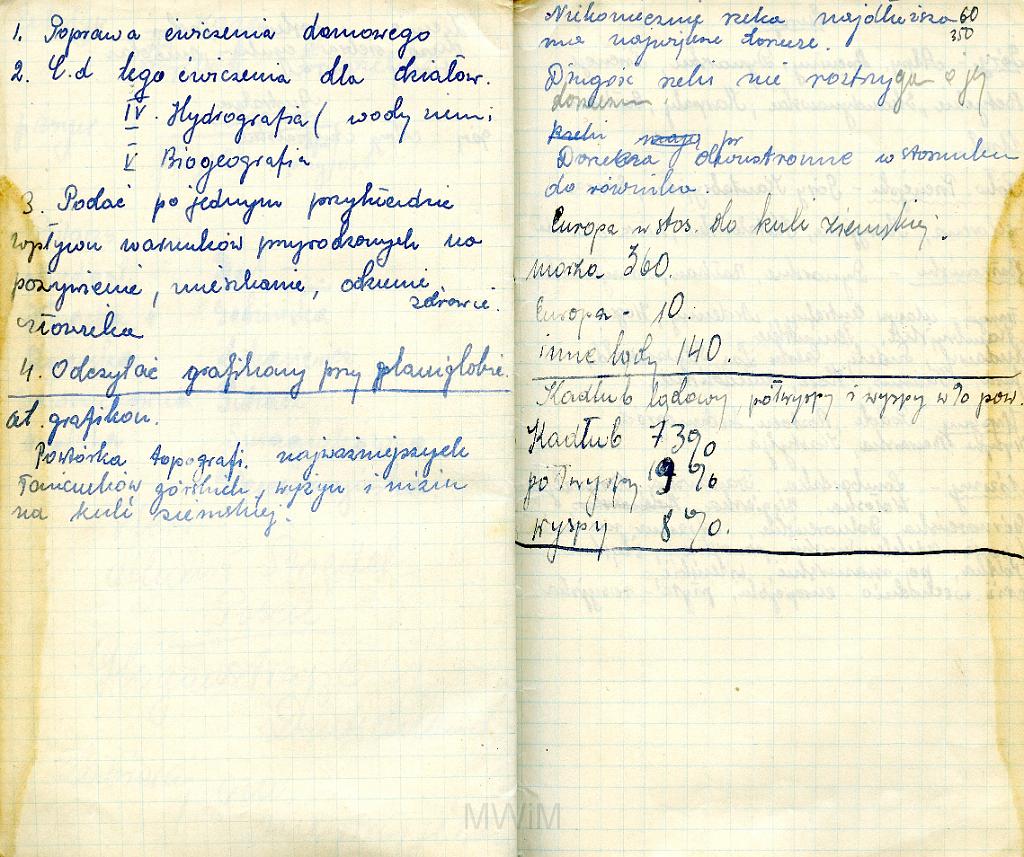 1. Poprawa ćwiczenia domowego
2. C.d tego ćwiczenia dla działów.
IV. Hydrografia ( wody ziemi
V Biogeografia
3. Podać po jednym przykładzie
wpływu warunków przyrodzonych na
pożywienie, mieszkanie, odzienie
zdrowie.
człowieka
4. Odczytać grafikony przy planiglobie.
at. grafikon.
Powtórka topografi. najważniejszych
łańcuchów górskich, wyżyn i nizin
na kuli ziemskiej.
Niekoniecznie rzeka najdłuższa 60
350
ma największe dorzecze.
Długość rzeki nie rozstrzyga o jej
dorzeczu
rzeki mają pr
Dorzecza dwustronne w stosunku
do równika.
Europa w stos. do kuli ziemskiej.
morza 360.
Europa - 10.
inne lądy 140.
Kadłub lądowy półwyspy i wyspy w % pow.
Kadłub 73%
półwyspy 19 %
wyspy 8 %.
MWiM